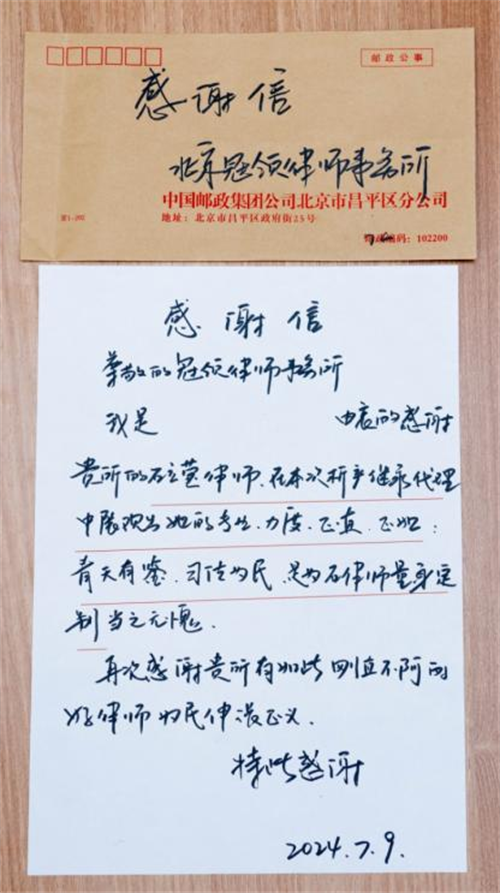 邮政公事
感谢信
北京冠领律师事务所
中国邮政集团公司北京市昌平区分公司
地址：北京市昌平区政府街25号
京1-202
邮政编码：102200
感谢信
尊敬的冠领律师事务所
我是 由衷的感谢
贵所的石立莹律师，在本次析产继承代理
中展现出她的专业、力度、正直、正如：
青天有鉴，司法为民，是为石律师量身定
制当之无愧。
再次感谢贵所有如此刚直不阿的
好律师为民伸张正义。
特此感谢
2024.7.9.